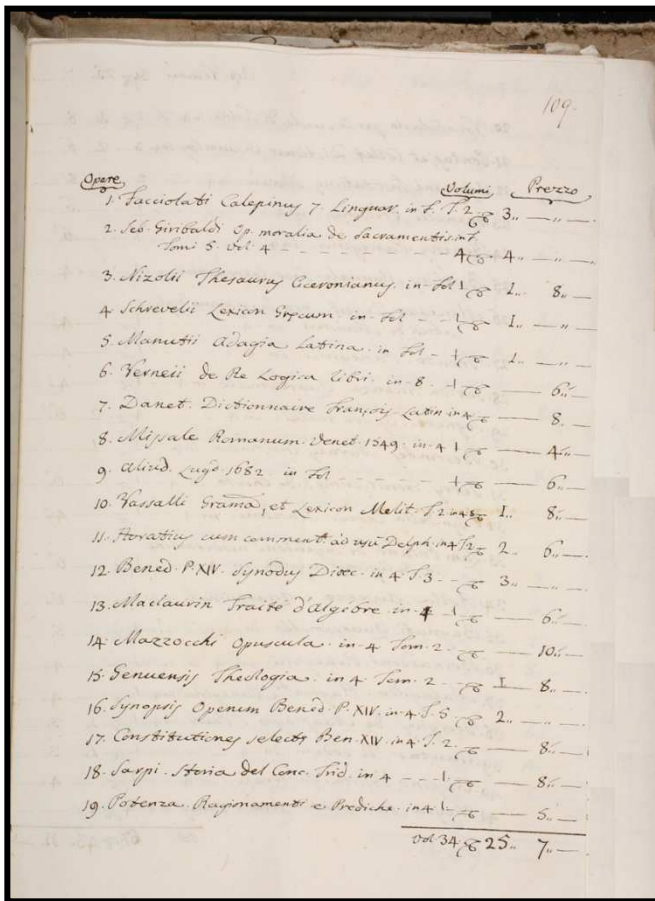 109
Opere Volumi Prezzo
1. Facciolati Calepinus 7. Linguar. in f. T. 2 3 „ — „ —
2. Seb. Giribaldi Op. moralia de Sacramentis in f.
Tomi 5. Vol. 4 - - - - - - - - 4 4 „ — „ —
3. Nizolii Thesaurus Ciceronianus. in fol 1 1 „ 8 „ —
4. Schrevelii Lexicon Grecum. in fol - - 1 1 „ — „
5. Manutii Adagia Latina. in fol - 1 1 „ — „ —
6. Verneii de Re Logica libri. in 8. - 1 — 6 „ —
7. Danet. Dictionnaire François Latin in 4 — 8. —
8. Missale Romanum. Venet. 1549. in 4 1 — 4 „ —
9. Aliud. Lugd. 1682. in fol 1 — 6 „ —
10. Vassalli Grama, et Lexicon Melit. T. 2 in 1 „ 8 „ —
11. Horatius cum comment. ad usū Delph. in 4 T. 2 2 „ 6 „ —
12. Bened. P. XIV. Synodus Dioec. in 4 T. 3 - - 3 „ — „ —
13. Maclaurin Traité d'algèbre. in 4 1 — 6 „ —
14. Mazzocchi Opuscula. in 4 Tom. 2. - — 10 „ —
15. Genuensis Theologia. in 4 Tom. 2 - - 1 — 8 „ —
16. Synopsis Operum Bened. P. XIV. in 4 T. 5 2 „ — „ —
17. Constitutiones selectæ Ben. XIV. in 4 T. 2. — 8 „ —
18. Sarpi. Storia del Conc. Trid. in 4 - - - 1 — 8 „ —
19. Potenza. Ragionamenti e Prediche. in 4 1 — 5 „ —
Vol 34 25 „ 7 „ —